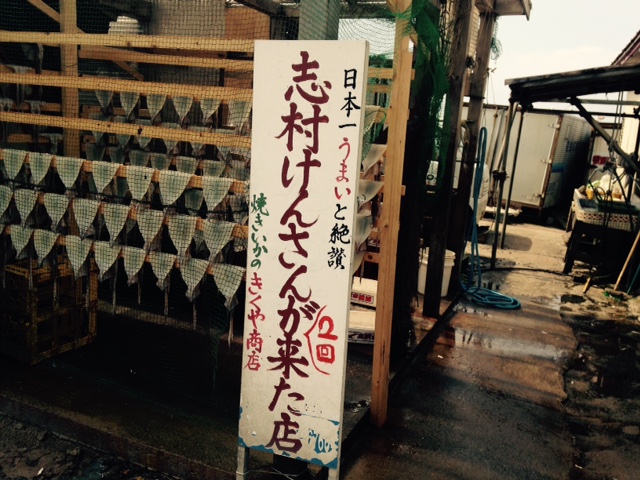 日本一うまいと絶讃
志村けんさんが来た店
2回
焼きいかの
きくや商店